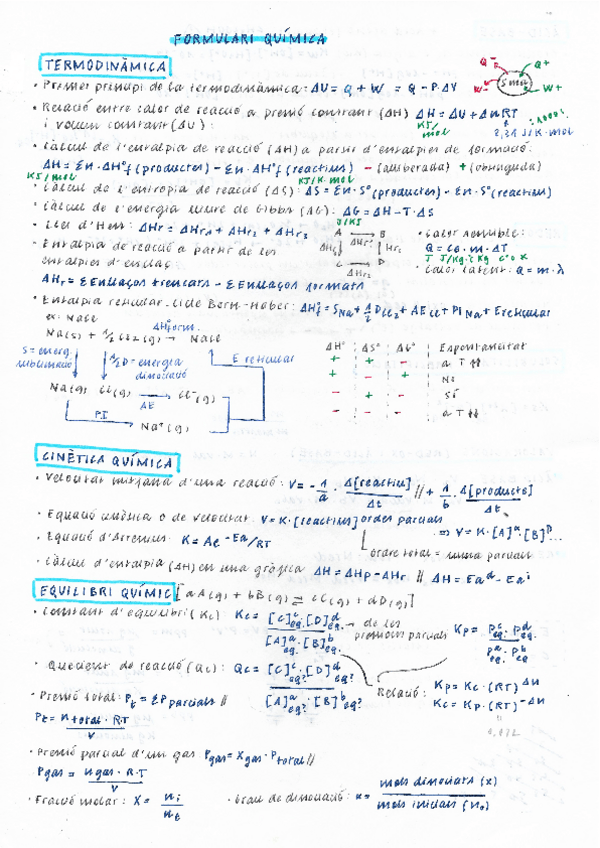 FORMULARI QUÍMICA
TERMODINÀMICA
Q- Q+
Sistema
W- W+
· Primer principi de la termodinàmica: ΔU = Q + W = Q - P·ΔV
· Relació entre calor de reacció a pressió constant (ΔH) ΔH = ΔU + ΔnRT
i volum constant (ΔU):
KJ/mol
8,31 J/K·mol
· Càlcul de l'entalpia de reacció (ΔH) a partir d'entalpies de formació:
ΔH = Σn·ΔH°f (productes) - Σn·ΔH°f (reactius) - (alliberada) + (absorbida)
KJ/mol KJ/K·mol
· Càlcul de l'entropia de reacció (ΔS): ΔS = Σn·S°(productes) - Σn·S°(reactius)
· Càlcul de l'energia lliure de Gibbs (ΔG): ΔG = ΔH - T·ΔS
· Llei d'Hess: ΔHr = ΔHr1 + ΔHr2 + ΔHr3
A → B
ΔHr1 ΔHr Hr3
C → D
ΔHr2
· Calor sensible:
Q = ce·m·ΔT
J J/Kg·K Kg
· Calor latent: Q = m·λ
· Entalpia de reacció a partir de les
entalpies d'enllaç:
ΔHr = ΣEnllaços trencats - ΣEnllaços formats
· Entalpia reticular. Cicle Born-Haber: ΔH°f = SNa + 1/2 DCl2 + AECl + PINa + Ereticular
ex: NaCl
ΔH°form.
Na(s) + 1/2 Cl2(g) → NaCl
S = energ. sublimació
1/2D = energia dissociació
E reticular
Na(g) Cl(g) → Cl⁻(g)
AE
P.I
Na⁺(g)
ΔH° ΔS° ΔG° Espontaneïtat
+ + - a T ↑↑
+ - + No
- + - Sí
- - - a T
CINÈTICA QUÍMICA
· Velocitat mitjana d'una reacció: V = - 1/a · Δ[reactiu]/Δt // + 1/b · Δ[producte]/Δt
· Equació cinètica o de velocitat: V = K·[reactius]ordre parcials ⇒ V = K·[A]α·[B]β...
ordre total = suma parcials
· Equació d'Arrhenius: K = Ae -Ea/RT
· Càlcul d'entalpia (ΔH) en una gràfica ΔH = ΔHp - ΔHr // ΔH = Ead - Eai
EQUILIBRI QUÍMIC [aA(g) + bB(g) ⇌ cC(g) + dD(g)]
· Constant d'equilibri (Kc): Kc = [C]c eq.·[D]d eq. / [A]a eq.·[B]b eq. → de les pressions parcials Kp = pc eq. · pd eq. / pa eq · pb eq
· Quocient de reacció (Qc): Qc = [C]c eq?·[D]d eq? / [A]a eq?·[B]b eq?
Relació: Kp = Kc·(RT)Δn
Kc = Kp·(RT)-Δn
0,082
· Pressió total: Pt = ΣP parcials //
Pt = n total·R·T / V
· Pressió parcial d'un gas Pgas = Xgas·Ptotal //
Pgas = ngas·R·T / V
· Fracció molar: X = ni / nt
· Grau de dissociació: α = mols dissociats (x) / mols inicials (n0)